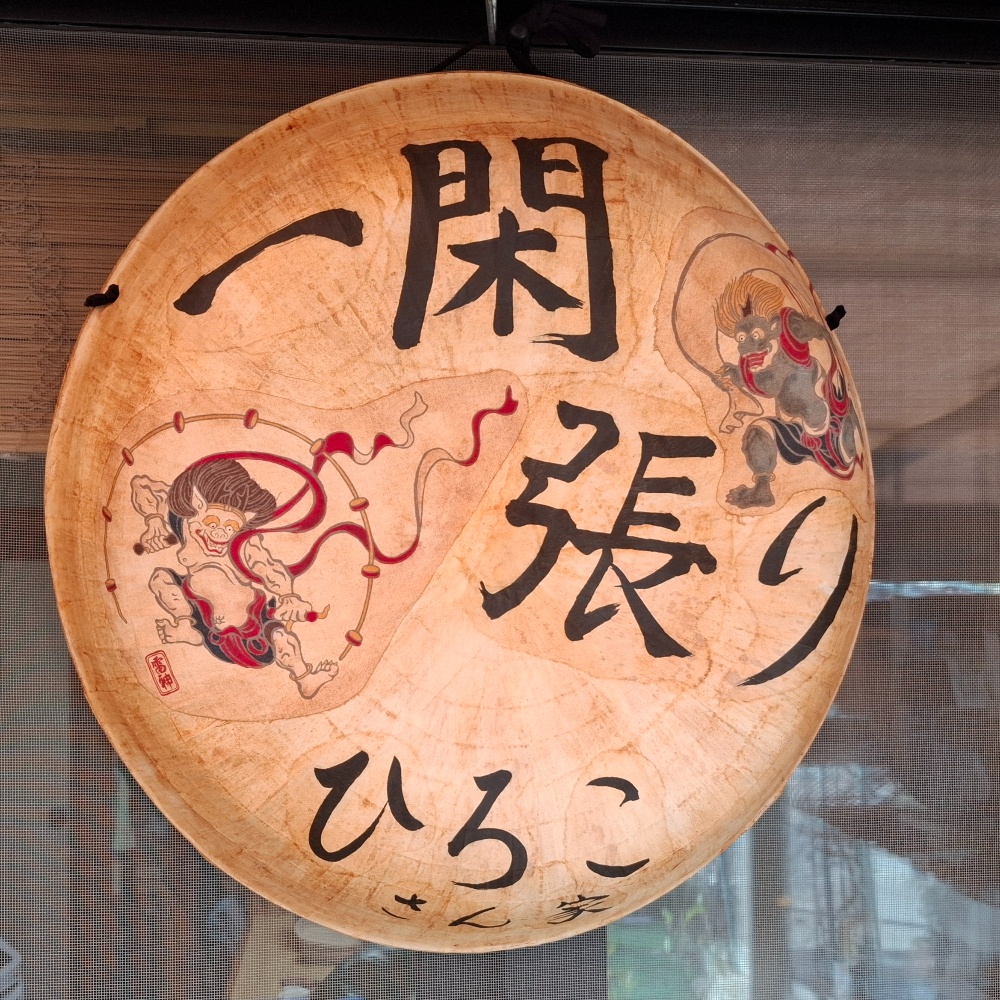 一閑
張り
ひろこ
さん家
雷神